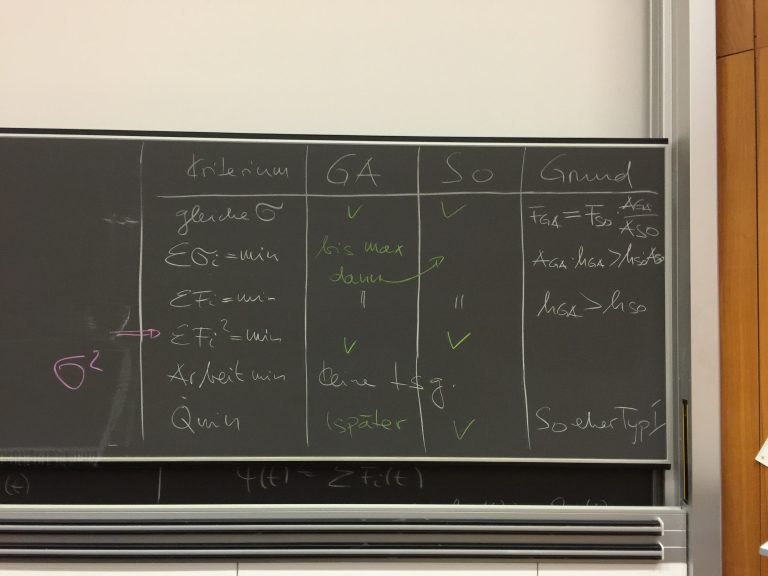 Kriterium GA SO Grund
gleiche σ ✓ ✓ F_GA = F_SO · A_GA/A_SO
Σσi = min bis max dann A_GA · h_GA > h_SO A_SO
ΣFi = min " " h_GA > h_SO
ΣFi² = min ✓ ✓
σ²
Arbeit min keine Lsg.
Q̇ min (später ✓ So eher Typ I
(t)
Ψ(t) = ΣFi(t)